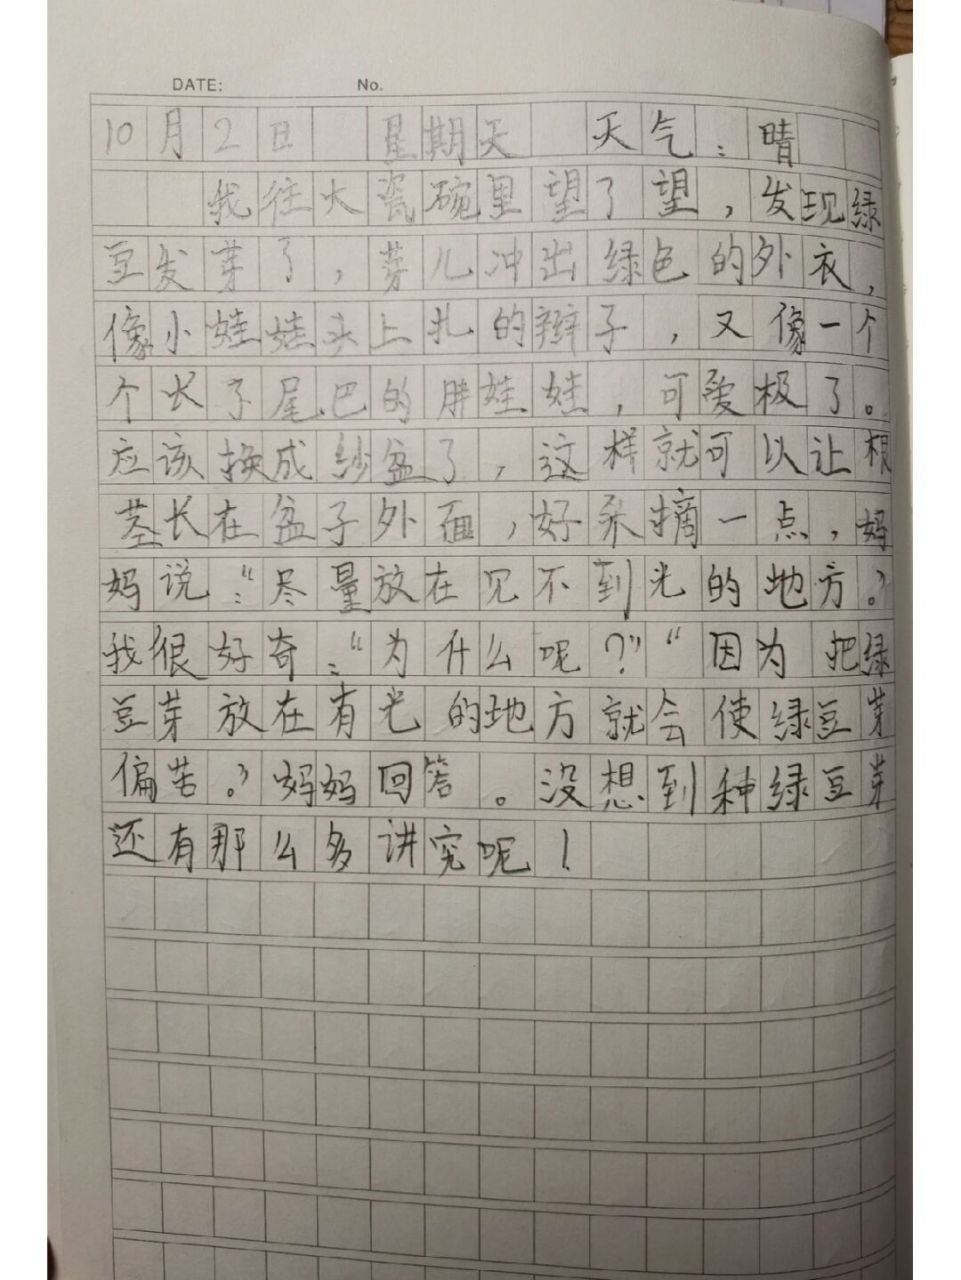 DATE: No.
10月2日 星期天 天气:晴
我往大瓷碗里望了望,发现绿
豆发芽了,芽儿冲出绿色的外衣,
像小娃娃头上扎的辫子,又像一个
个长了尾巴的胖娃娃,可爱极了。
应该换成纱盆了,这样就可以让根
茎长在盆子外面,好采摘一点,妈
妈说:“尽量放在见不到光的地方。”
我很好奇:“为什么呢?”“因为把绿
豆芽放在有光的地方就会使绿豆芽
偏苦。”妈妈回答。没想到种绿豆芽
还有那么多讲究呢!